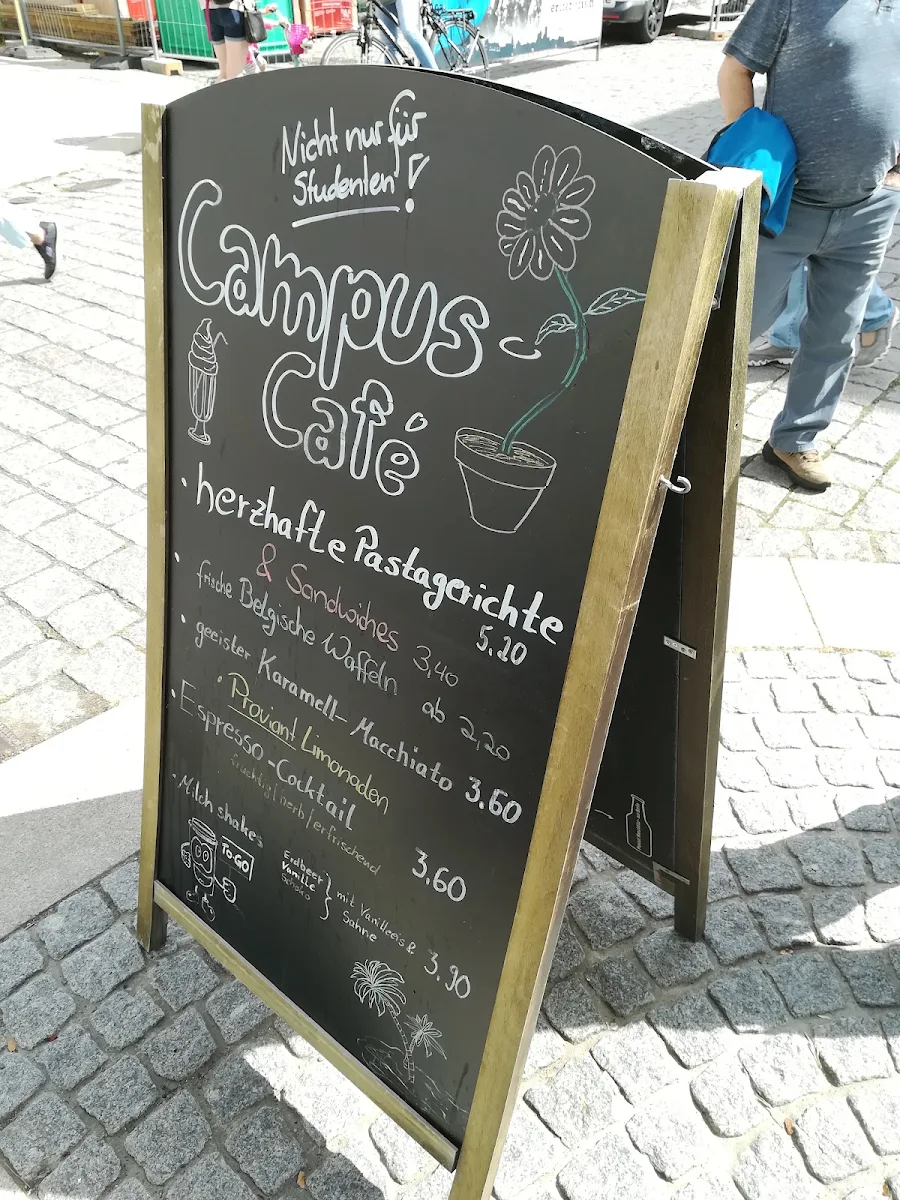 Nicht nur für
Studenten!
Campus-
Café
· herzhafte Pastagerichte
5.20
& Sandwiches 3,40
· frische Belgische Waffeln ab 2,20
· geeister Karamell-Macchiato 3.60
· Proviant Limonaden
fruchtig/herb/erfrischend
· Espresso-Cocktail 3.60
· Milchshakes
TO GO
Erdbeer
Vanille
Schoko
mit Vanilleeis &
Sahne
3.90